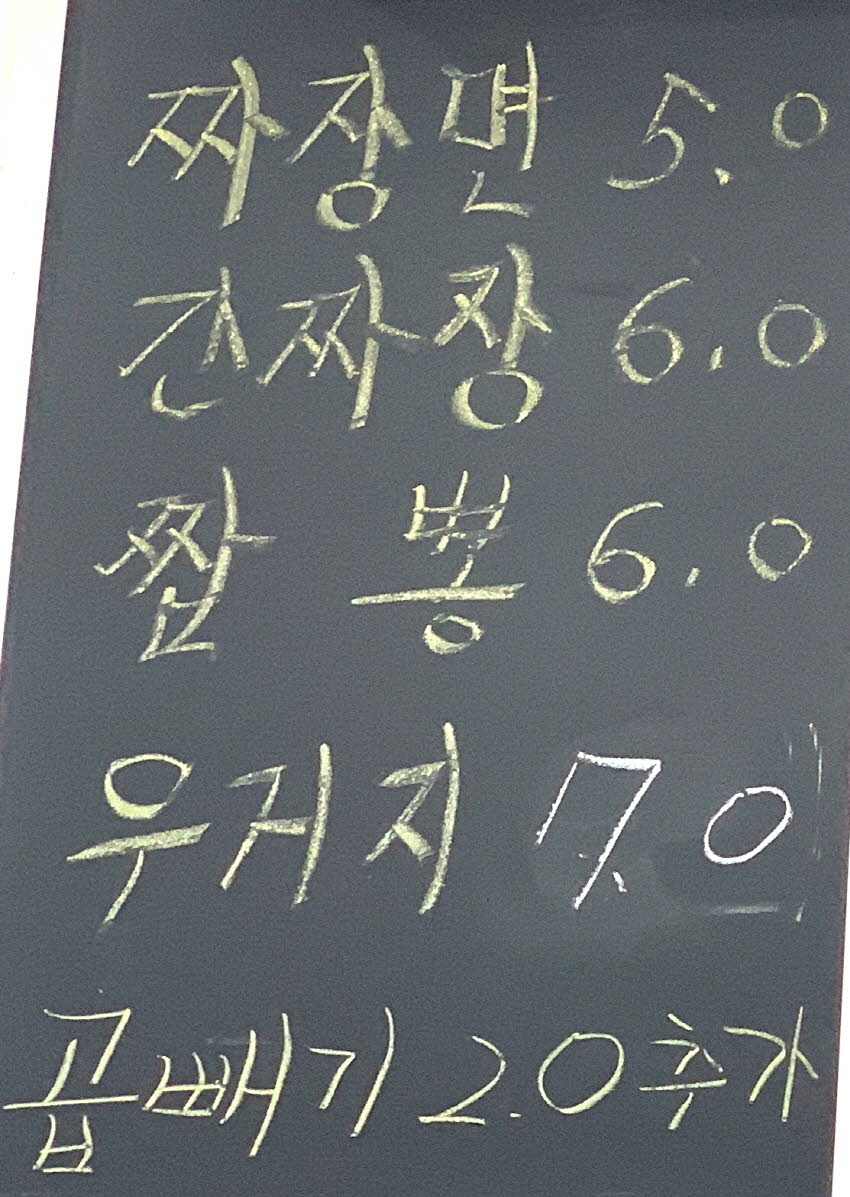 짜장면 5.0
간짜장 6.0
짬뽕 6.0
우거지 7.0
곱빼기 2.0 추가